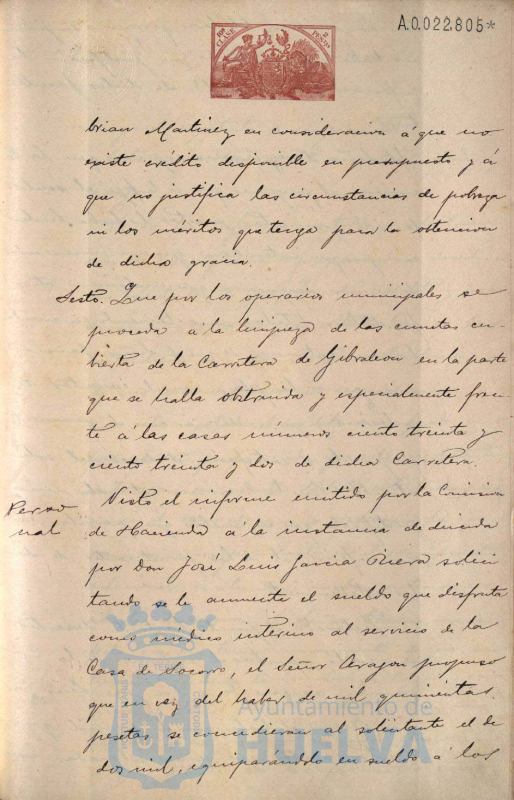 10ª CLASE 2 PESETAS
A.0.022.805*
brian Martinez en consideracion á que no
existe crédito disponible en presupuesto y á
que no justifica las circunstancias de pobreza
ni los méritos que tenga para la obtencion
de dicha gracia.
Sesto. Que por los operarios municipales se
proceda á la limpieza de las cunetas cu-
bierta de la Carretera de Gibraleon en la parte
que se halla obstruida y especialmente fren-
te á las casas números ciento treinta y
ciento treinta y dos de dicha Carretera.
Perso
nal
Visto el informe emitido por la Comision
de Hacienda á la instancia deducida
por Don José Luis Garcia solici
tando se le aumente el sueldo que disfruta
como médico interino al servicio de la
Casa de Socorro, el Señor Aragon propuso
que en vez del haber de mil quinientas
pesetas se concedieran al solicitante el de
dos mil, equiparandolo en sueldo á los
Ayuntamiento de
HUELVA